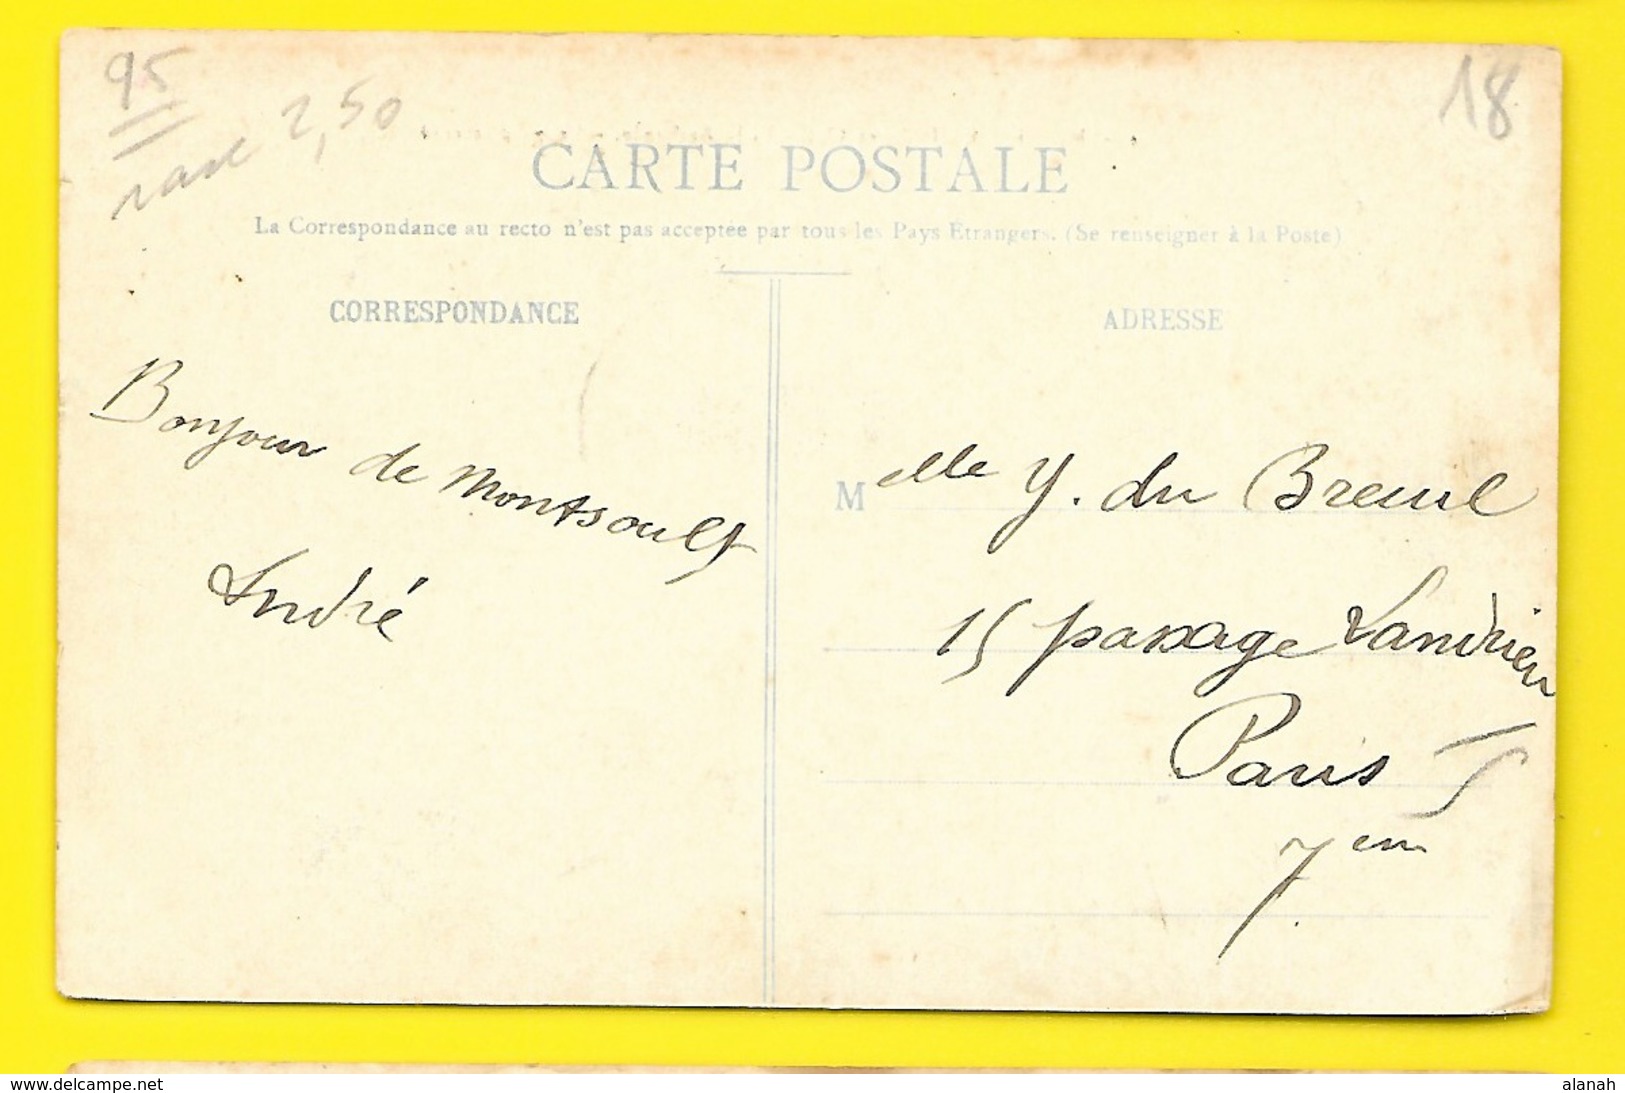 95
rare 2,50
18
CARTE POSTALE
La Correspondance au recto n'est pas acceptée par tous les Pays Etrangers. (Se renseigner à la Poste)
CORRESPONDANCE
Bonjour de Montsoult
André
ADRESSE
Melle Y. du Breuil
15 passage Landrieu
Paris
7em
www.delcampe.net
alanah